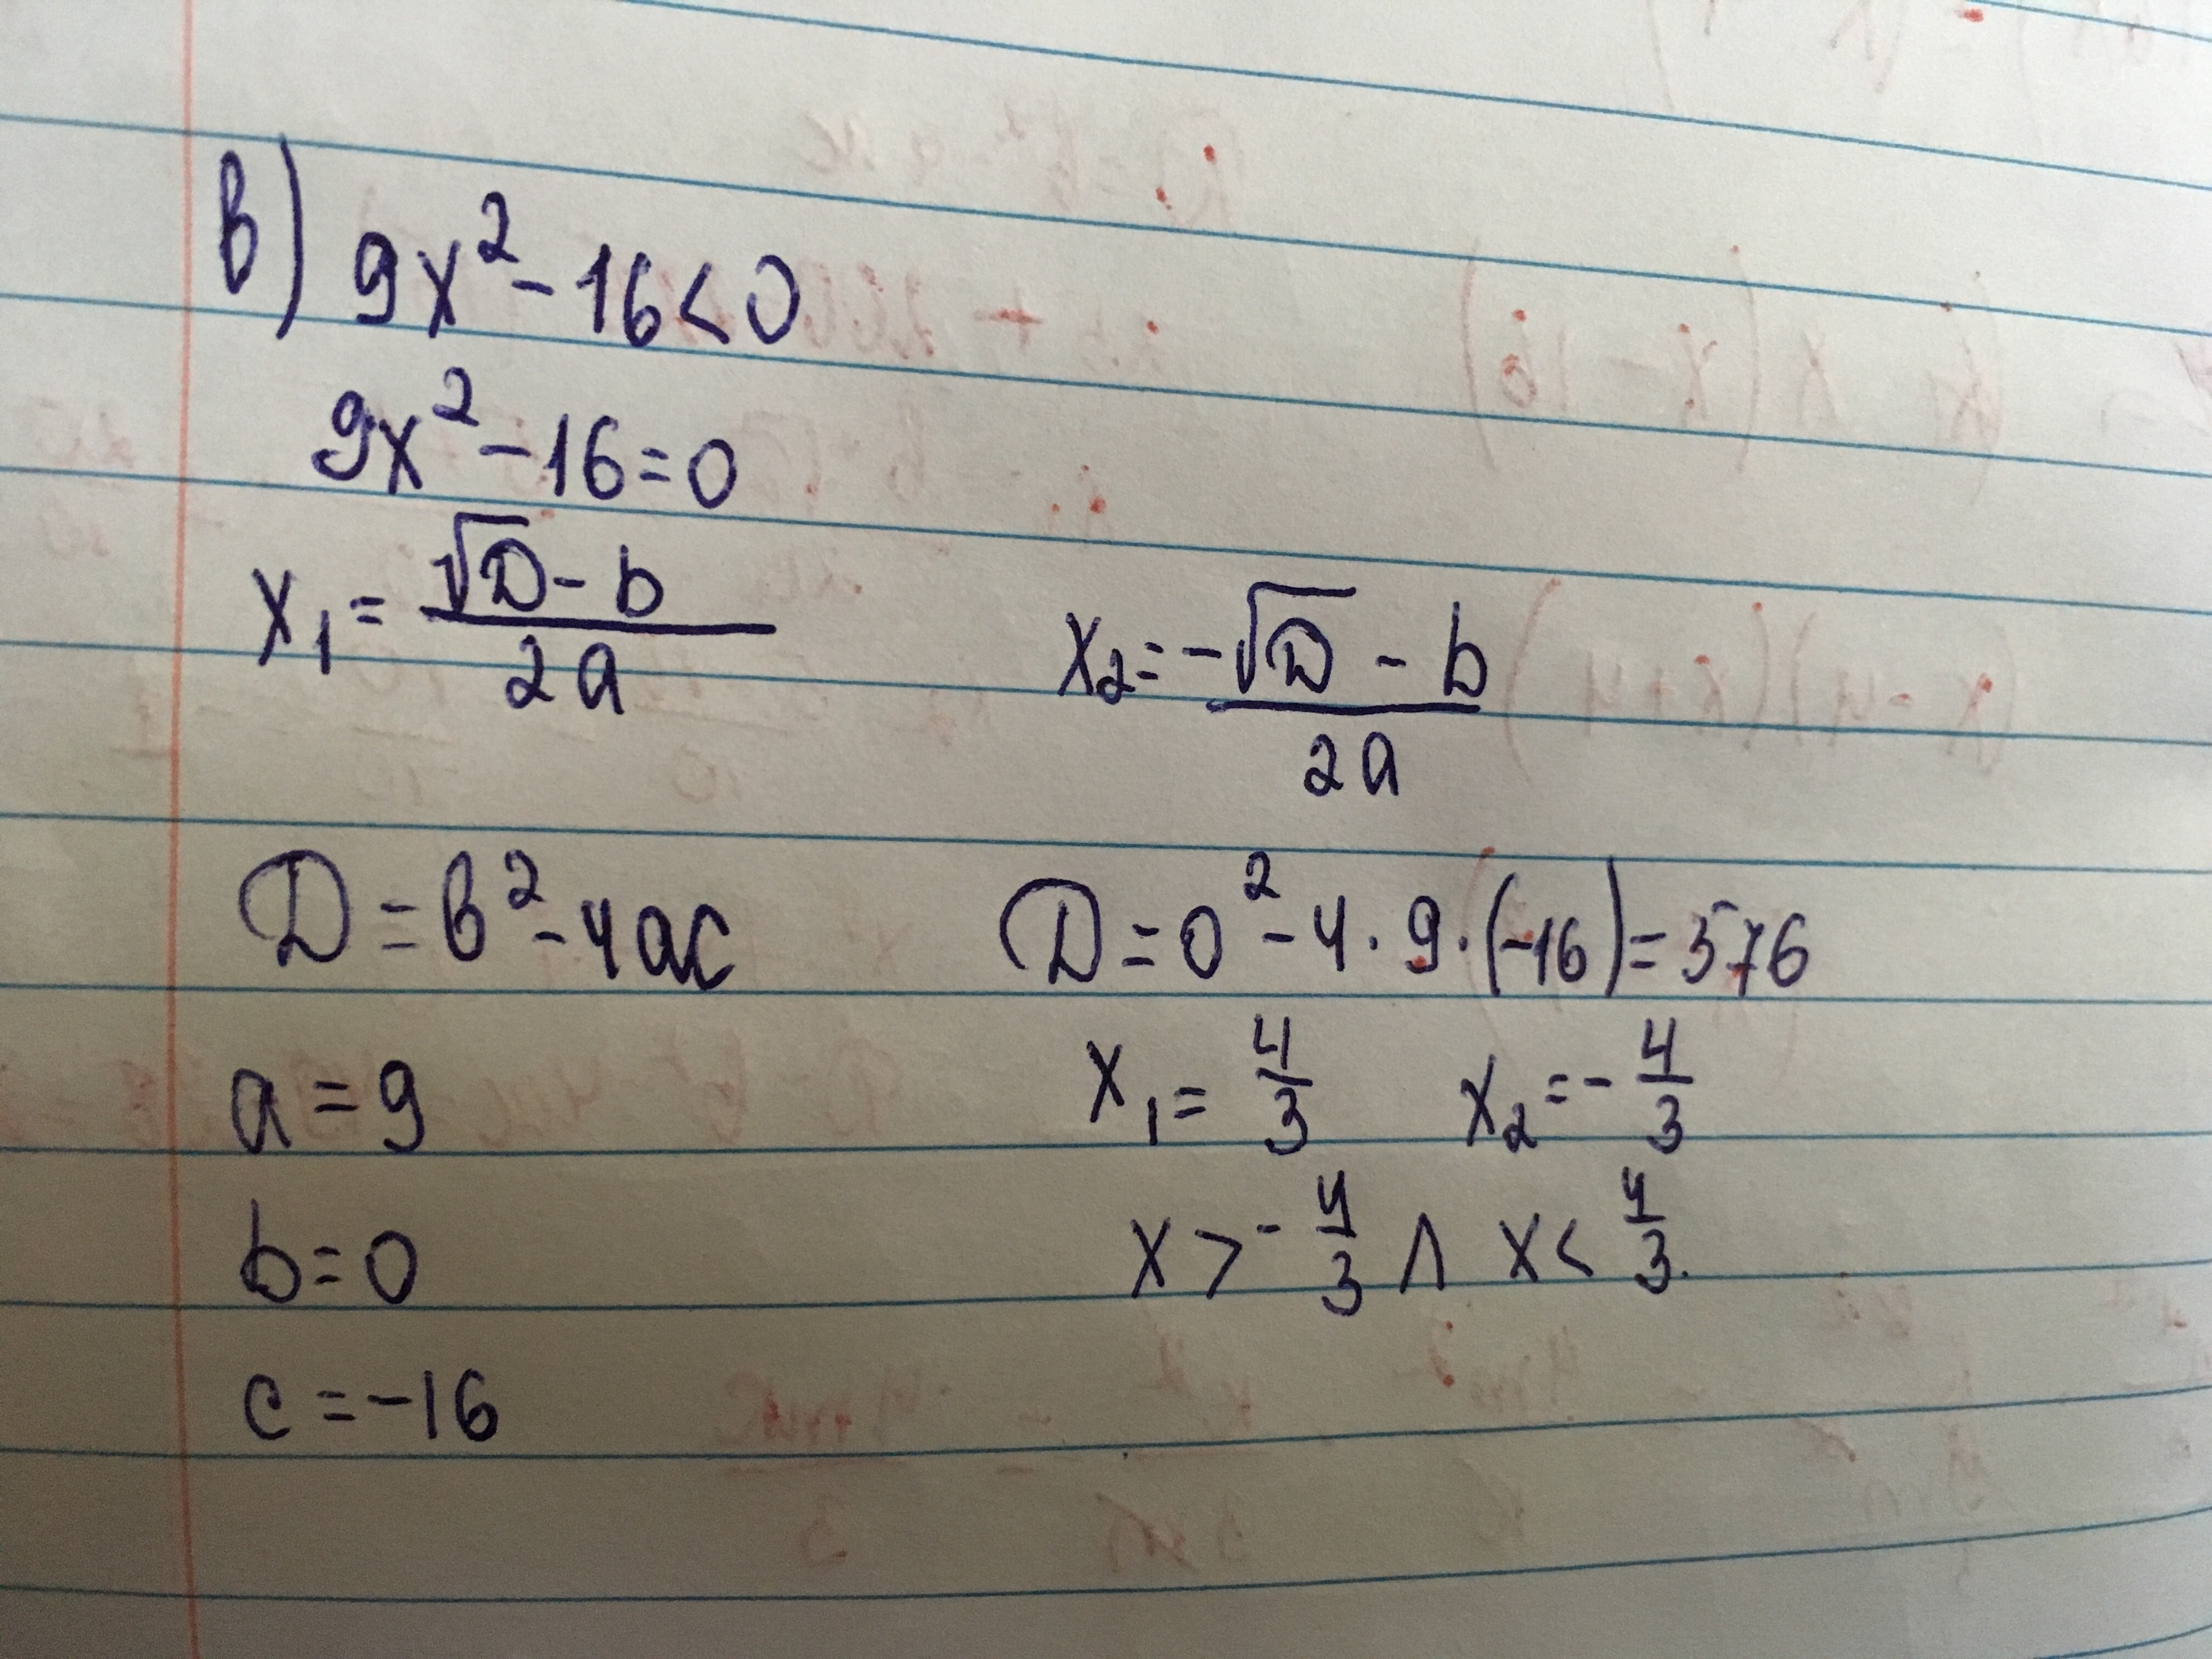 в) 9x² - 16 < 0
9x² - 16 = 0
x₁ = (√D - b)/(2a)    x₂ = (-√D - b)/(2a)
D = b² - 4ac    D = 0² - 4 · 9 · (-16) = 576
a = 9    x₁ = 4/3    x₂ = - 4/3
b = 0    x > - 4/3 ∧ x < 4/3.
c = -16